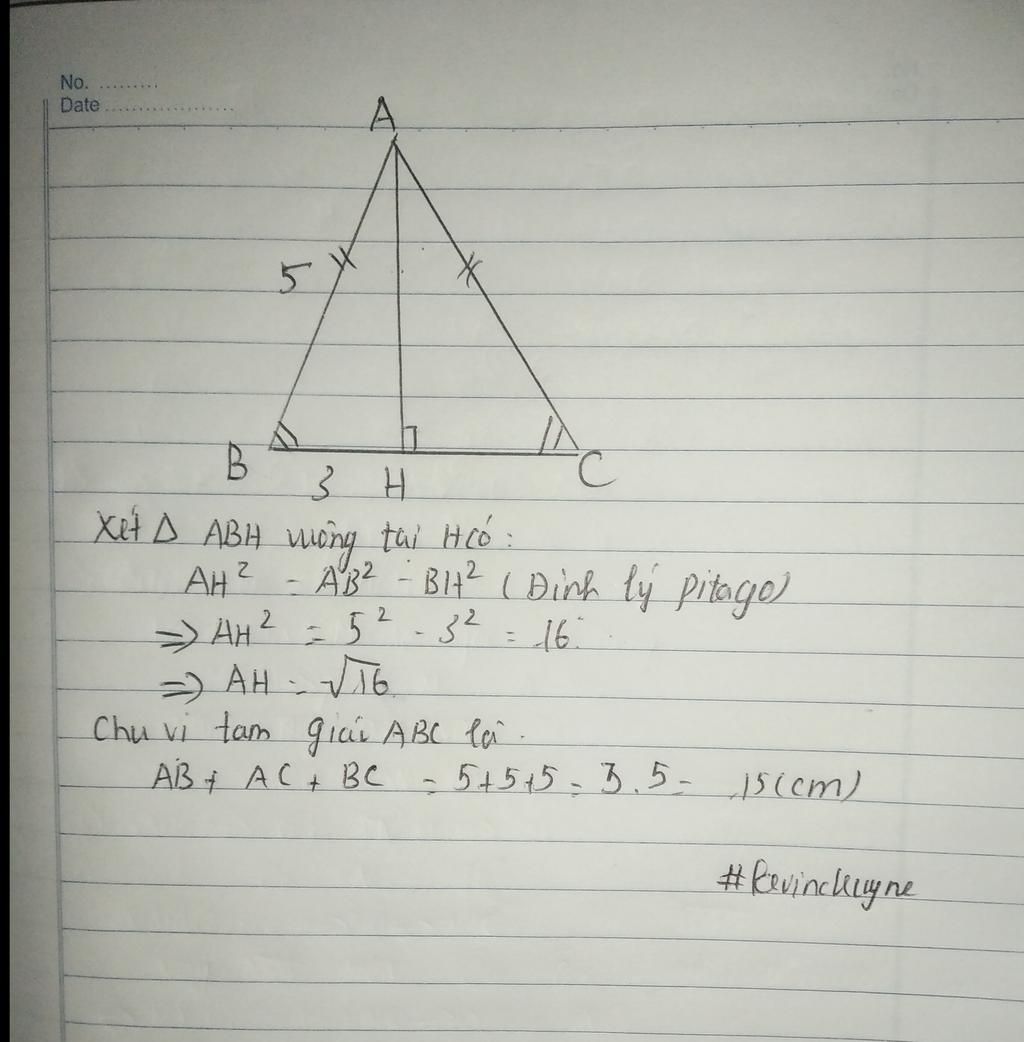 No. .........
Date ...................
A
5
B 3 H C
Xét Δ ABH vuông tại H có :
AH² = AB² - BH² ( Định lý pitago)
=> AH² = 5² - 3² = 16
=> AH = √16
Chu vi tam giác ABC là
AB + AC + BC = 5+5+5 = 3.5 = 15(cm)